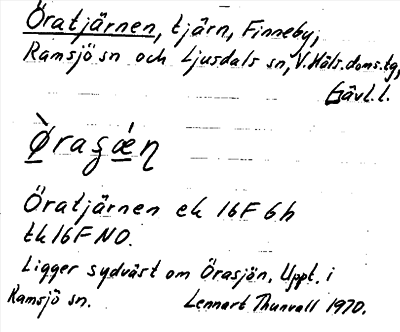 Öratjärnen, tjärn, Finneby,
Ramsjö sn och Ljusdals sn, V. Häls. doms. tg,
Gävl. l.
Ø̀ragǽn
Öratjärnen ek 16F 6h
tk 16F NO.
Ligger sydväst om Örasjön. Uppt. i
Ramsjö sn. Lennart Thunvall 1970.